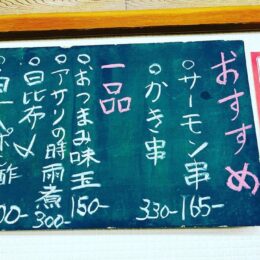 おすすめ
○サーモン串 165-
○かき串 330-
一品
○おつまみ味玉 150-
○アサリの時雨煮 300-
○白昆布〆
ポン酢 00-